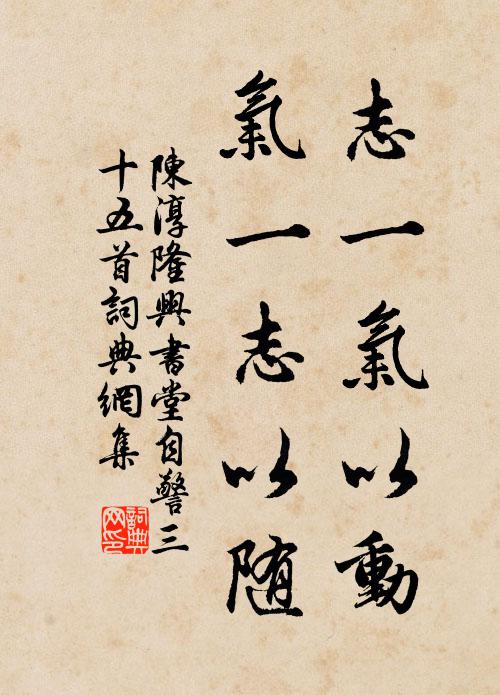 志一氣以動
氣一志以随
陳淳隆興書堂自警三
十五首詞典網集
詞典网印